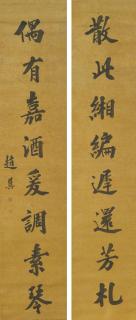 散此緗編遲還芳札
偶有嘉酒爰調素琴
趙熊